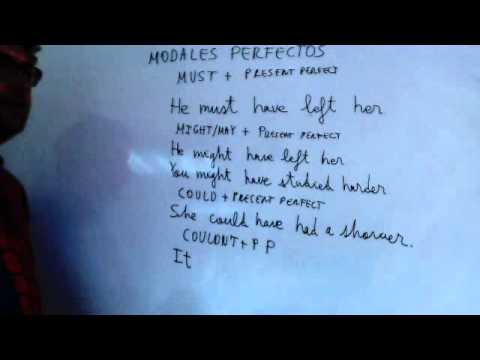 MODALES PERFECTOS
MUST + PRESENT PERFECT
He must have left her
MIGHT/MAY + PRESENT PERFECT
He might have left her
You might have studied harder
COULD + PRESENT PERFECT
She could have had a shower.
COULDNT + P P
It